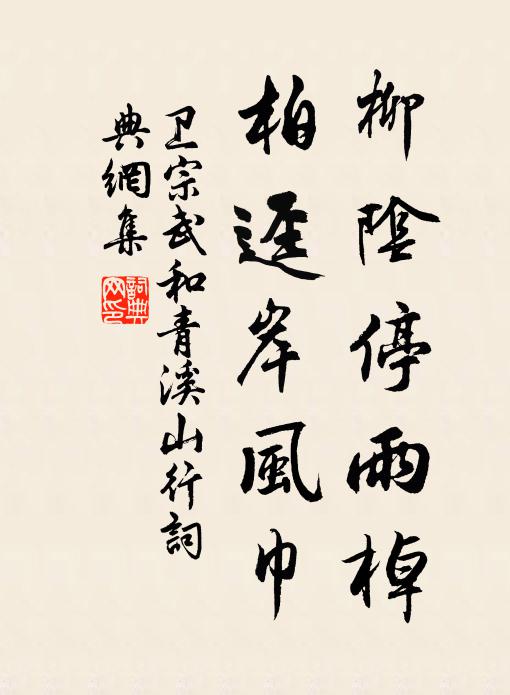 柳陰停雨棹
柏逕岸風巾
卫宗武和青溪山行詞
典網集
詞典
网印